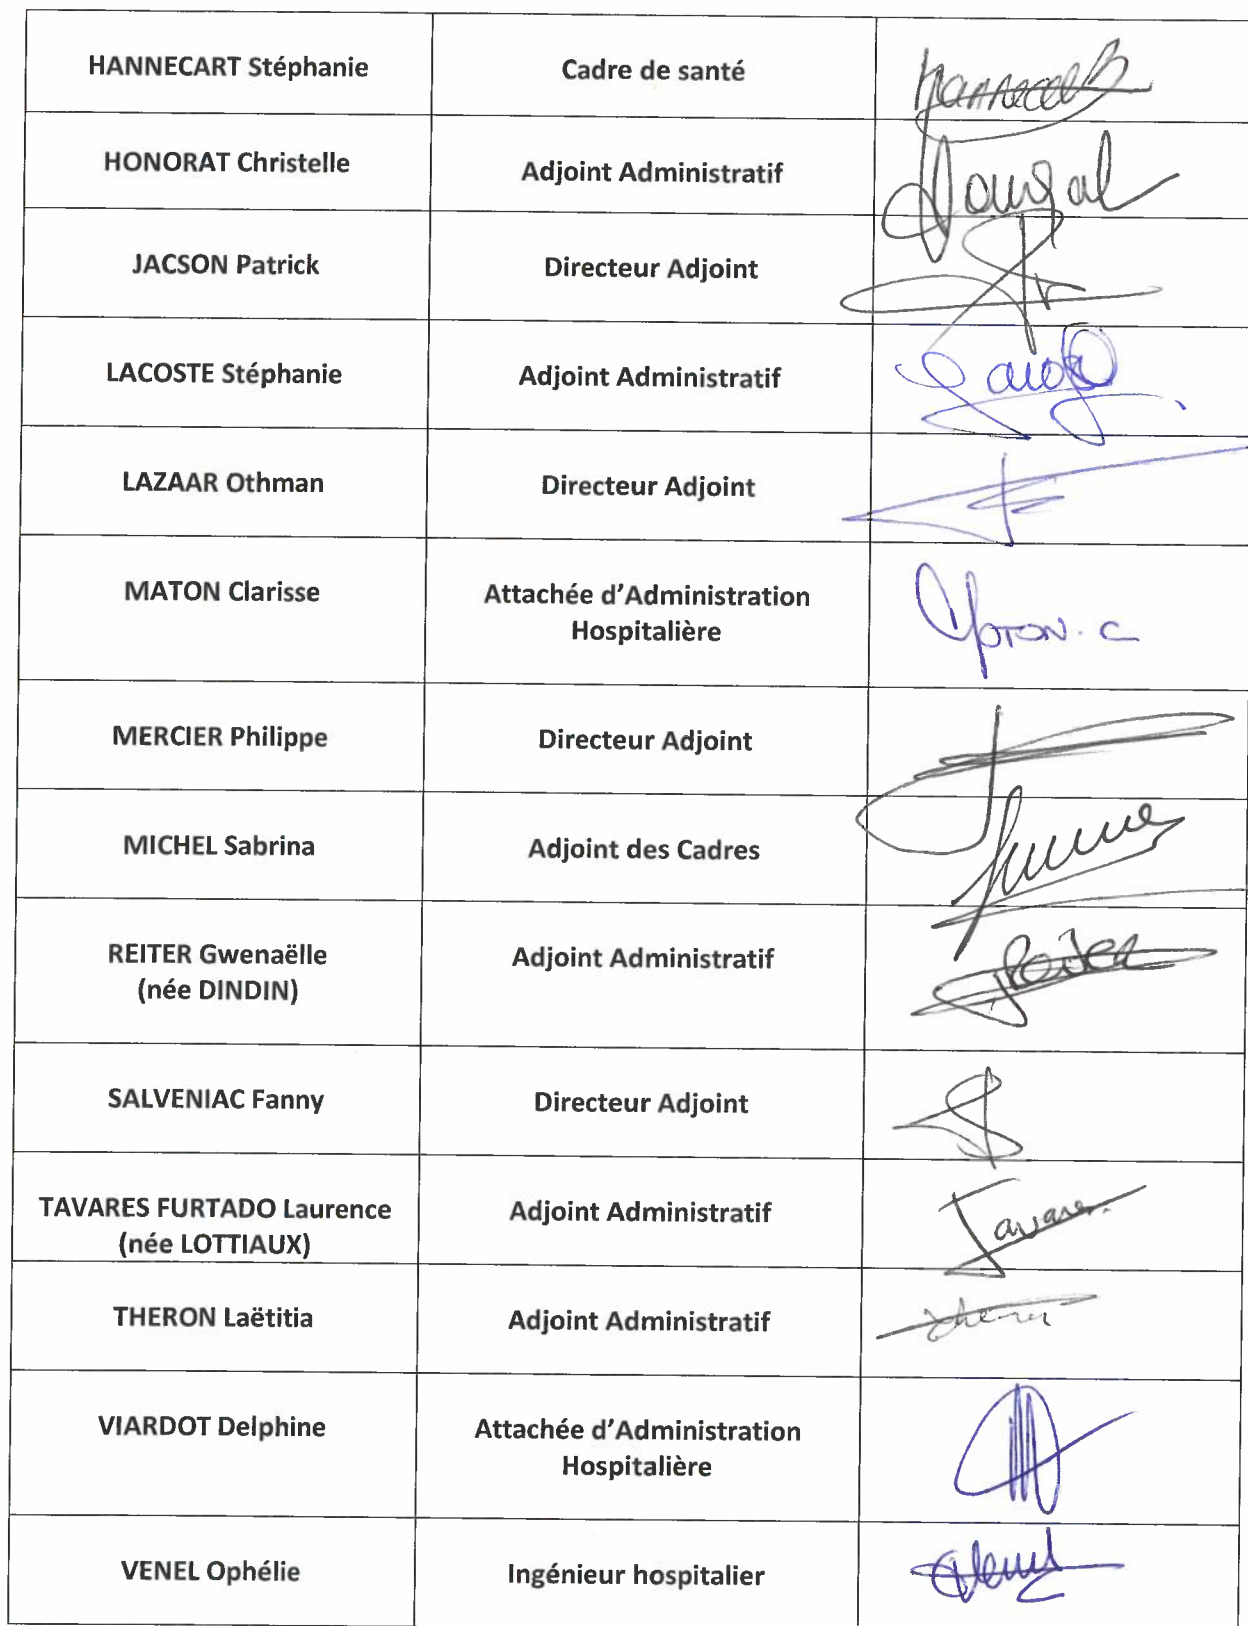 HANNECART Stéphanie
Cadre de santé
Hannecart
HONORAT Christelle
Adjoint Administratif
JACSON Patrick
Directeur Adjoint
LACOSTE Stéphanie
Adjoint Administratif
LAZAAR Othman
Directeur Adjoint
MATON Clarisse
Attachée d'Administration
Hospitalière
MATON. C
MERCIER Philippe
Directeur Adjoint
MICHEL Sabrina
Adjoint des Cadres
REITER Gwenaëlle
(née DINDIN)
Adjoint Administratif
Reiter
SALVENIAC Fanny
Directeur Adjoint
TAVARES FURTADO Laurence
(née LOTTIAUX)
Adjoint Administratif
Tavares
THERON Laëtitia
Adjoint Administratif
VIARDOT Delphine
Attachée d'Administration
Hospitalière
VENEL Ophélie
Ingénieur hospitalier
Venel